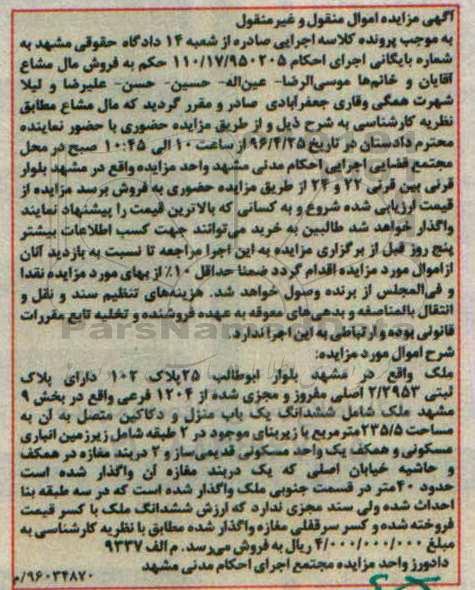 آگهی مزایده اموال منقول و غیرمنقول
به موجب پرونده کلاسه اجرایی صادره از شعبه 14 دادگاه حقوقی مشهد به
شماره بایگانی اجرای احکام 110/17/950205 حکم به فروش مال مشاع
آقایان و خانم‌ها موسی‌الرضا- عین‌اله- حسین- حسن- علیرضا و لیلا
شهرت همگی وقاری جعفرآبادی صادر و مقرر گردید که مال مشاع مطابق
نظریه کارشناسی به شرح ذیل و از طریق مزایده حضوری با حضور نماینده
محترم دادستان در تاریخ 96/4/25 از ساعت 10 الی 10:45 صبح در محل
مجتمع قضایی اجرایی احکام مدنی مشهد واحد مزایده واقع در مشهد بلوار
قرنی بین قرنی 22 و 24 از طریق مزایده حضوری به فروش برسد مزایده از
قیمت ارزیابی شده شروع و به کسانی که بالاترین قیمت را پیشنهاد نمایند
واگذار خواهد شد طالبین به خرید می‌توانند جهت کسب اطلاعات بیشتر
پنج روز قبل از برگزاری مزایده به این اجرا مراجعه تا نسبت به بازدید آنان
از اموال مورد مزایده اقدام گردد ضمنا حداقل 10٪ از بهای مورد مزایده نقدا
و فی‌المجلس از برنده وصول خواهد شد. هزینه‌های تنظیم سند و نقل و
انتقال بالمناصفه و بدهی‌های معوقه به عهده فروشنده و تخلیه تابع مقررات
قانونی بوده و ارتباطی به این اجرا ندارد.
شرح اموال مورد مزایده:
ملک واقع در مشهد بلوار ابوطالب 25پلاک 102 دارای پلاک
ثبتی 2/2953 اصلی مفروز و مجزی شده از 1204 فرعی واقع در بخش 9
مشهد ملک شامل ششدانگ یک باب منزل و دکاکین متصل به آن به
مساحت 235/5مترمربع با زیربنای موجود در 2 طبقه شامل زیرزمین انباری
مسکونی و همکف یک واحد مسکونی قدیمی‌ساز و 2 دربند مغازه در همکف
و حاشیه خیابان اصلی که یک دربند مغازه آن واگذار شده است
حدود 40متر در قسمت جنوبی ملک واگذار شده است که در سه طبقه بنا
احداث شده ولی سند مجزی ندارد که ارزش ششدانگ ملک با کسر قیمت
فروخته شده و کسر سرقفلی مغازه واگذار شده مطابق با نظریه کارشناسی به
مبلغ 4/000/000/000 ریال به فروش می‌رسد. م الف 9337
دادورز واحد مزایده مجتمع اجرای احکام مدنی مشهد
96034870/م